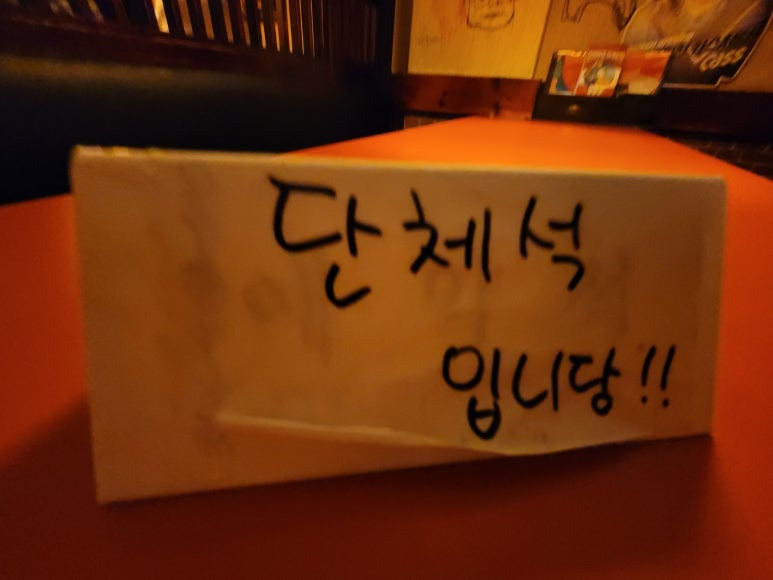 cass
단체석
입니당!!